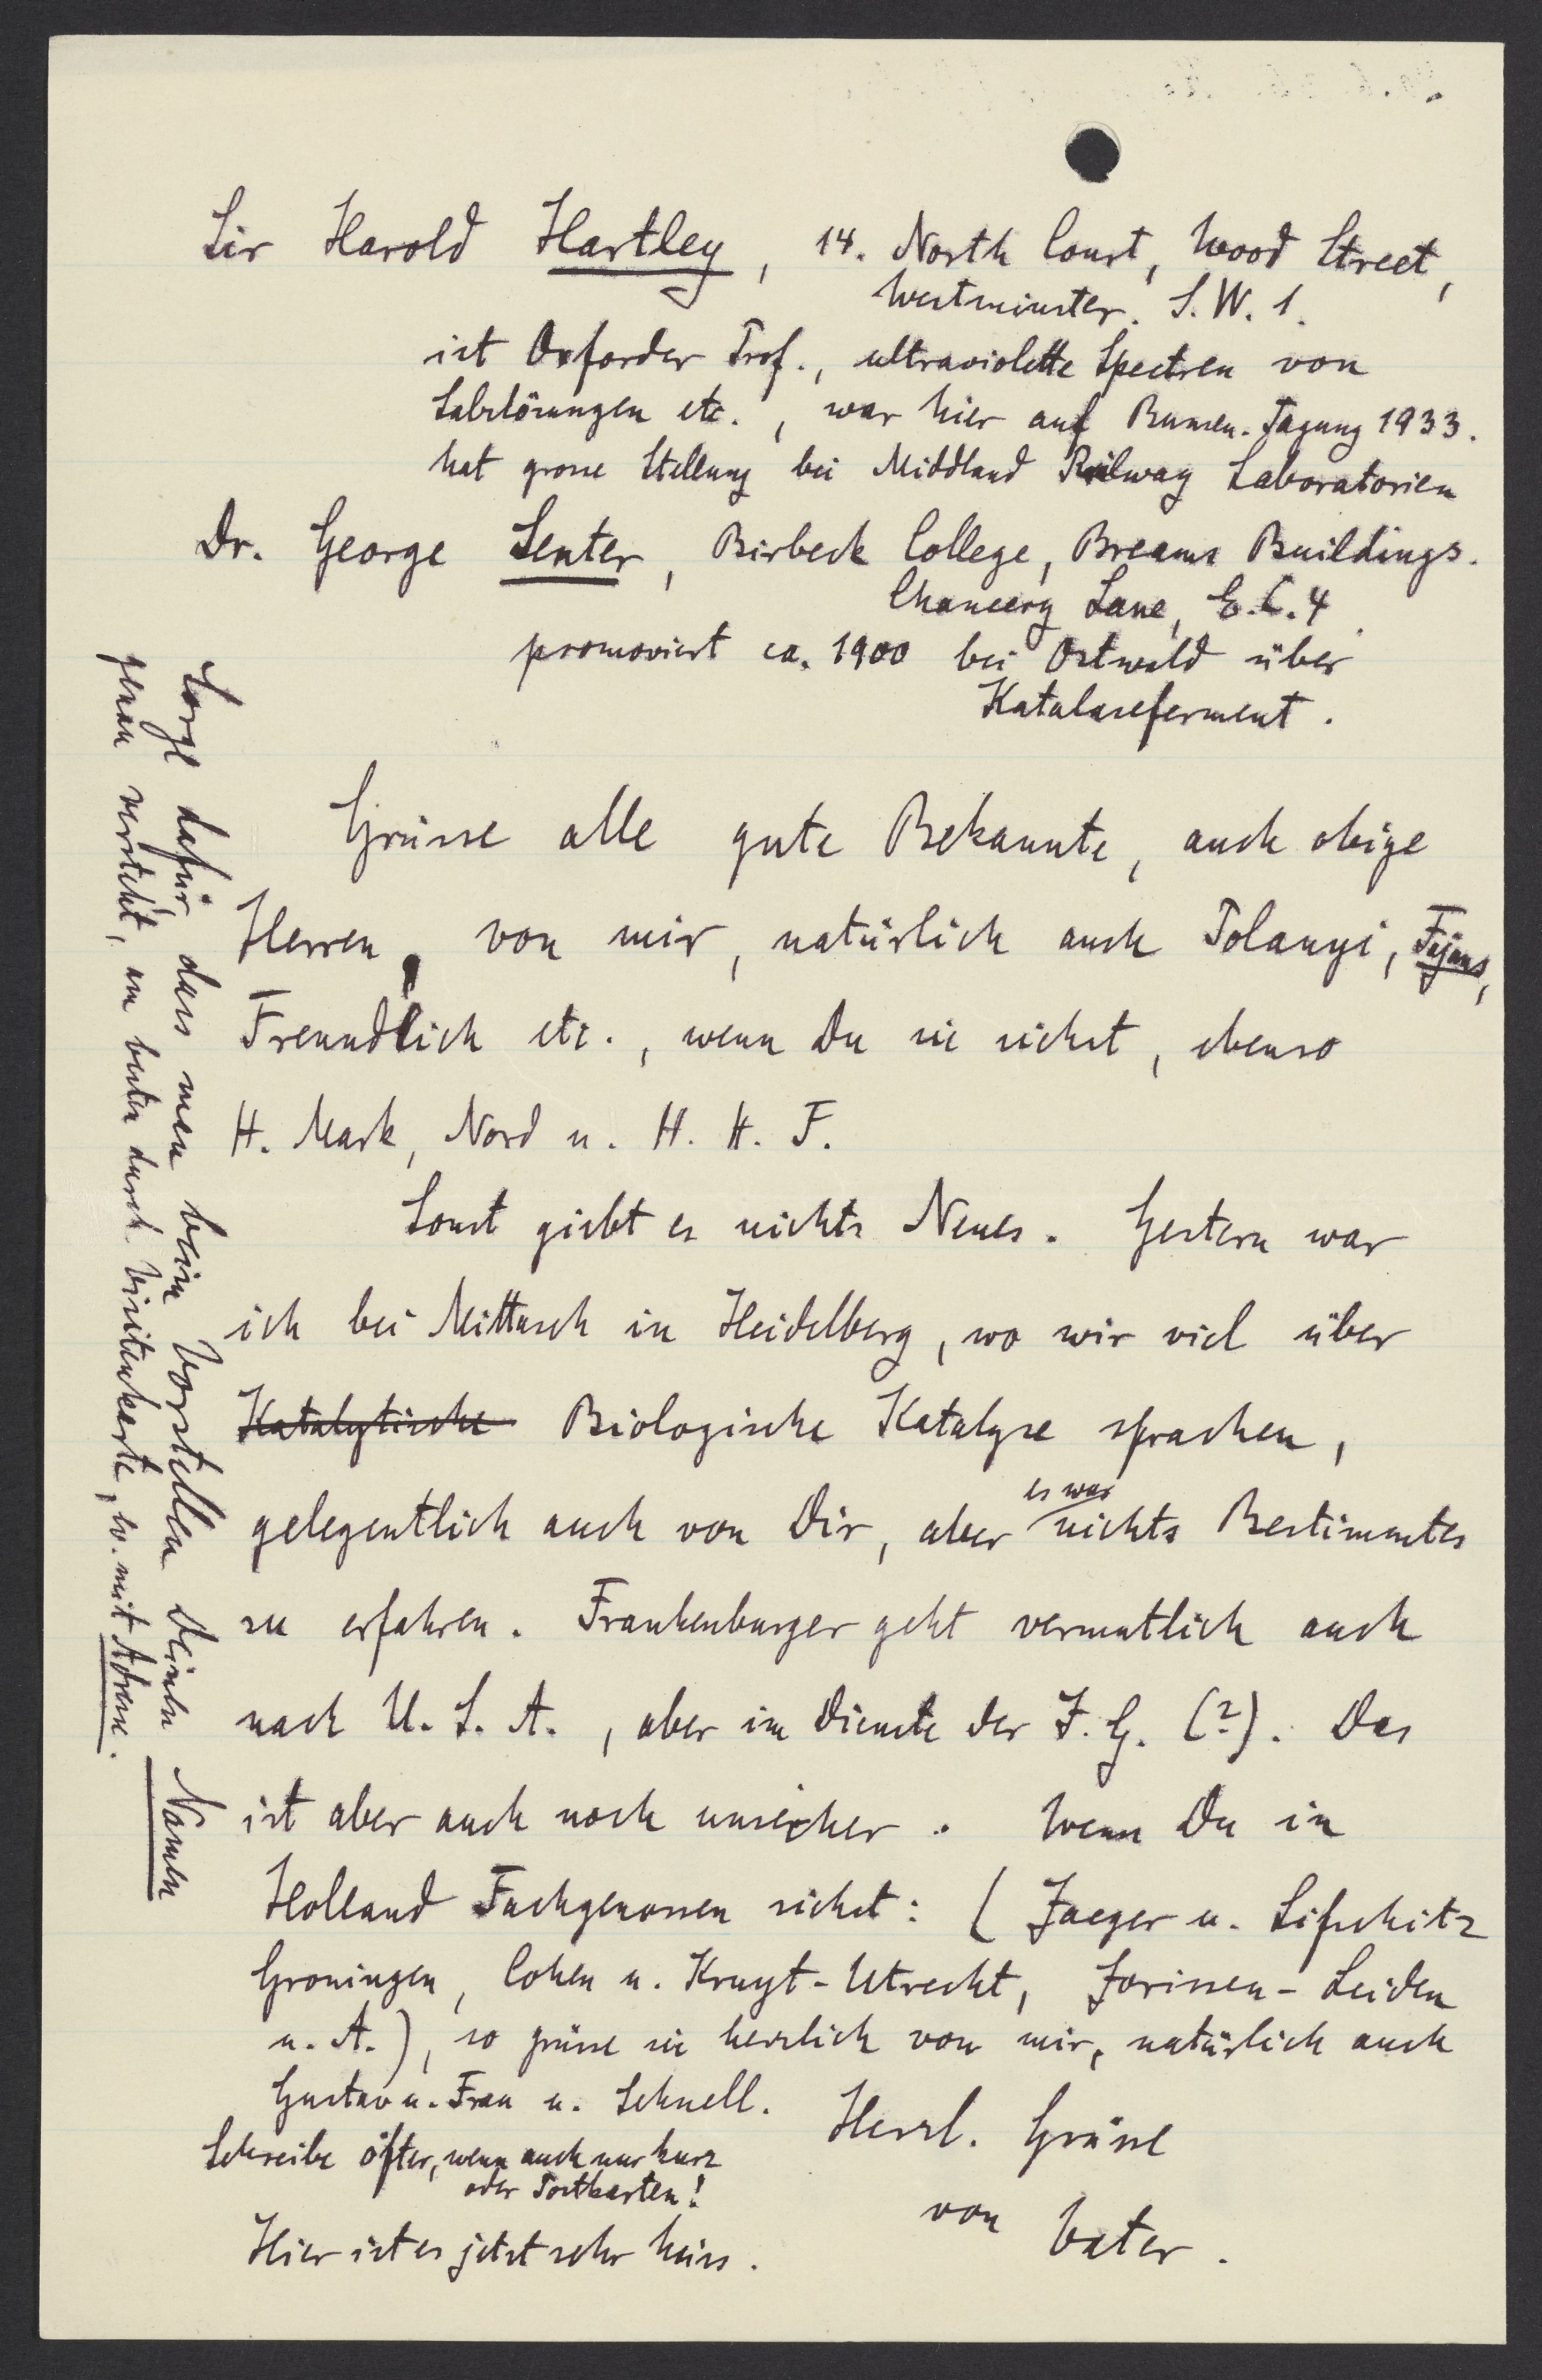 Sir Harold Hartley, 14. North Court, Wood Street,
Westminster. S.W.1.
ist Oxforder Prof., ultraviolette Spectren von
Salzlösungen etc., war hier auf Bunsen-Tagung 1933.
hat grosse Stellung bei Middland Railway Laboratorien
Dr. George Senter, Birbeck College, Breams Buildings.
Chancery Lane, E.C.4.
promoviert ca. 1900 bei Ostwald über
Katalaseferment.
Grüsse alle gute Bekannte, auch obige
Herren, von mir, natürlich auch Polanyi, Fajans,
Freundlich etc., wenn Du sie siehst, ebenso
H. Mark, Nord u. H. H. F.
Sonst giebt es nichts Neues. Gestern war
ich bei Mittasch in Heidelberg, wo wir viel über
Katalytische Biologische Katalyse sprachen,
es war
gelegentlich auch von Dir, aber nichts Bestimmtes
zu erfahren. Frankenburger geht vermutlich auch
nach U.S.A., aber im Dienste der I.G. (?). Das
ist aber auch noch unsicher. Wenn Du in
Holland Fachgenossen siehst: (Jaeger u. Lifschitz
Groningen, Cohen u. Kruyt-Utrecht, Jorissen-Leiden
u. A.), so grüsse sie herzlich von mir, natürlich auch
Gustav u. Frau u. Schnell.
Herzl. Grüsse
von Vater.
Schreibe öfter, wenn auch nur kurz
oder Postkarten!
Hier ist es jetzt sehr heiss.
Sorge dafür, dass man beim Vorstellen Deinen Namen
genau versteht, am besten durch Visitenkarte, ev. mit Adresse.